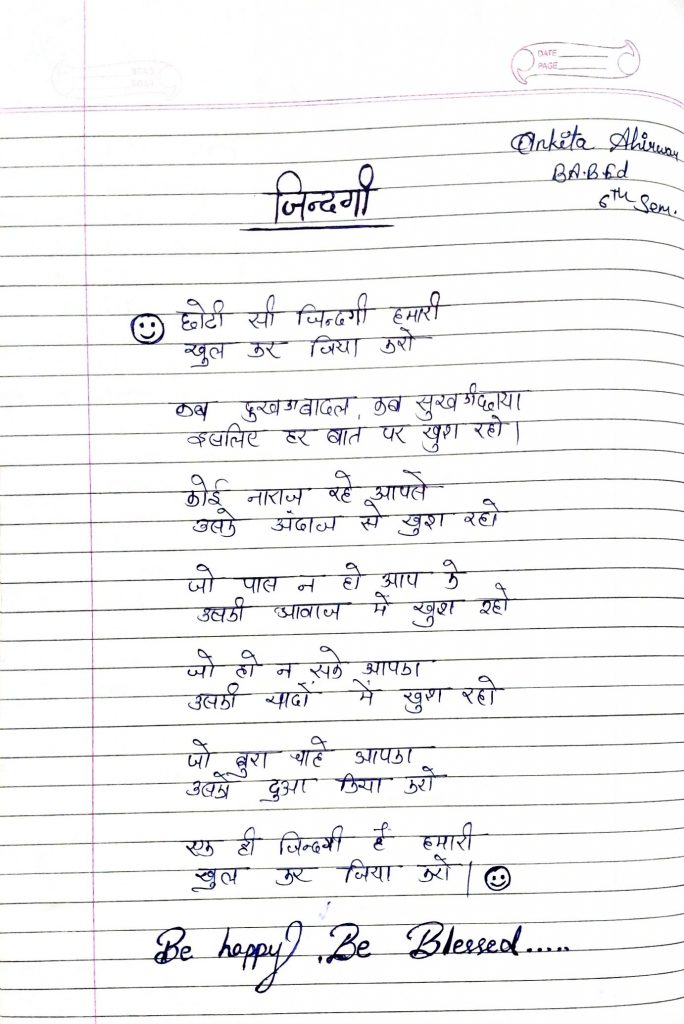 DATE
PAGE
Ankita Ahirwar
B.A.B.Ed
6TH Sem.
जिन्दगी
छोटी सी जिन्दगी हमारी
खुल कर जिया करो
कब दुख का बादल, कब सुख की छाया
इसलिए हर बात पर खुश रहो।
कोई नाराज रहे आपसे
उसके अंदाज से खुश रहो
जो पास न हो आप के
उसकी आवाज में खुश रहो
जो हो न सके आपका
उसकी यादों में खुश रहो
जो बुरा चाहे आपका
उसको दुआ किया करो
एक ही जिन्दगी है हमारी
खुल कर जिया करो।
Be happy, Be Blessed.....